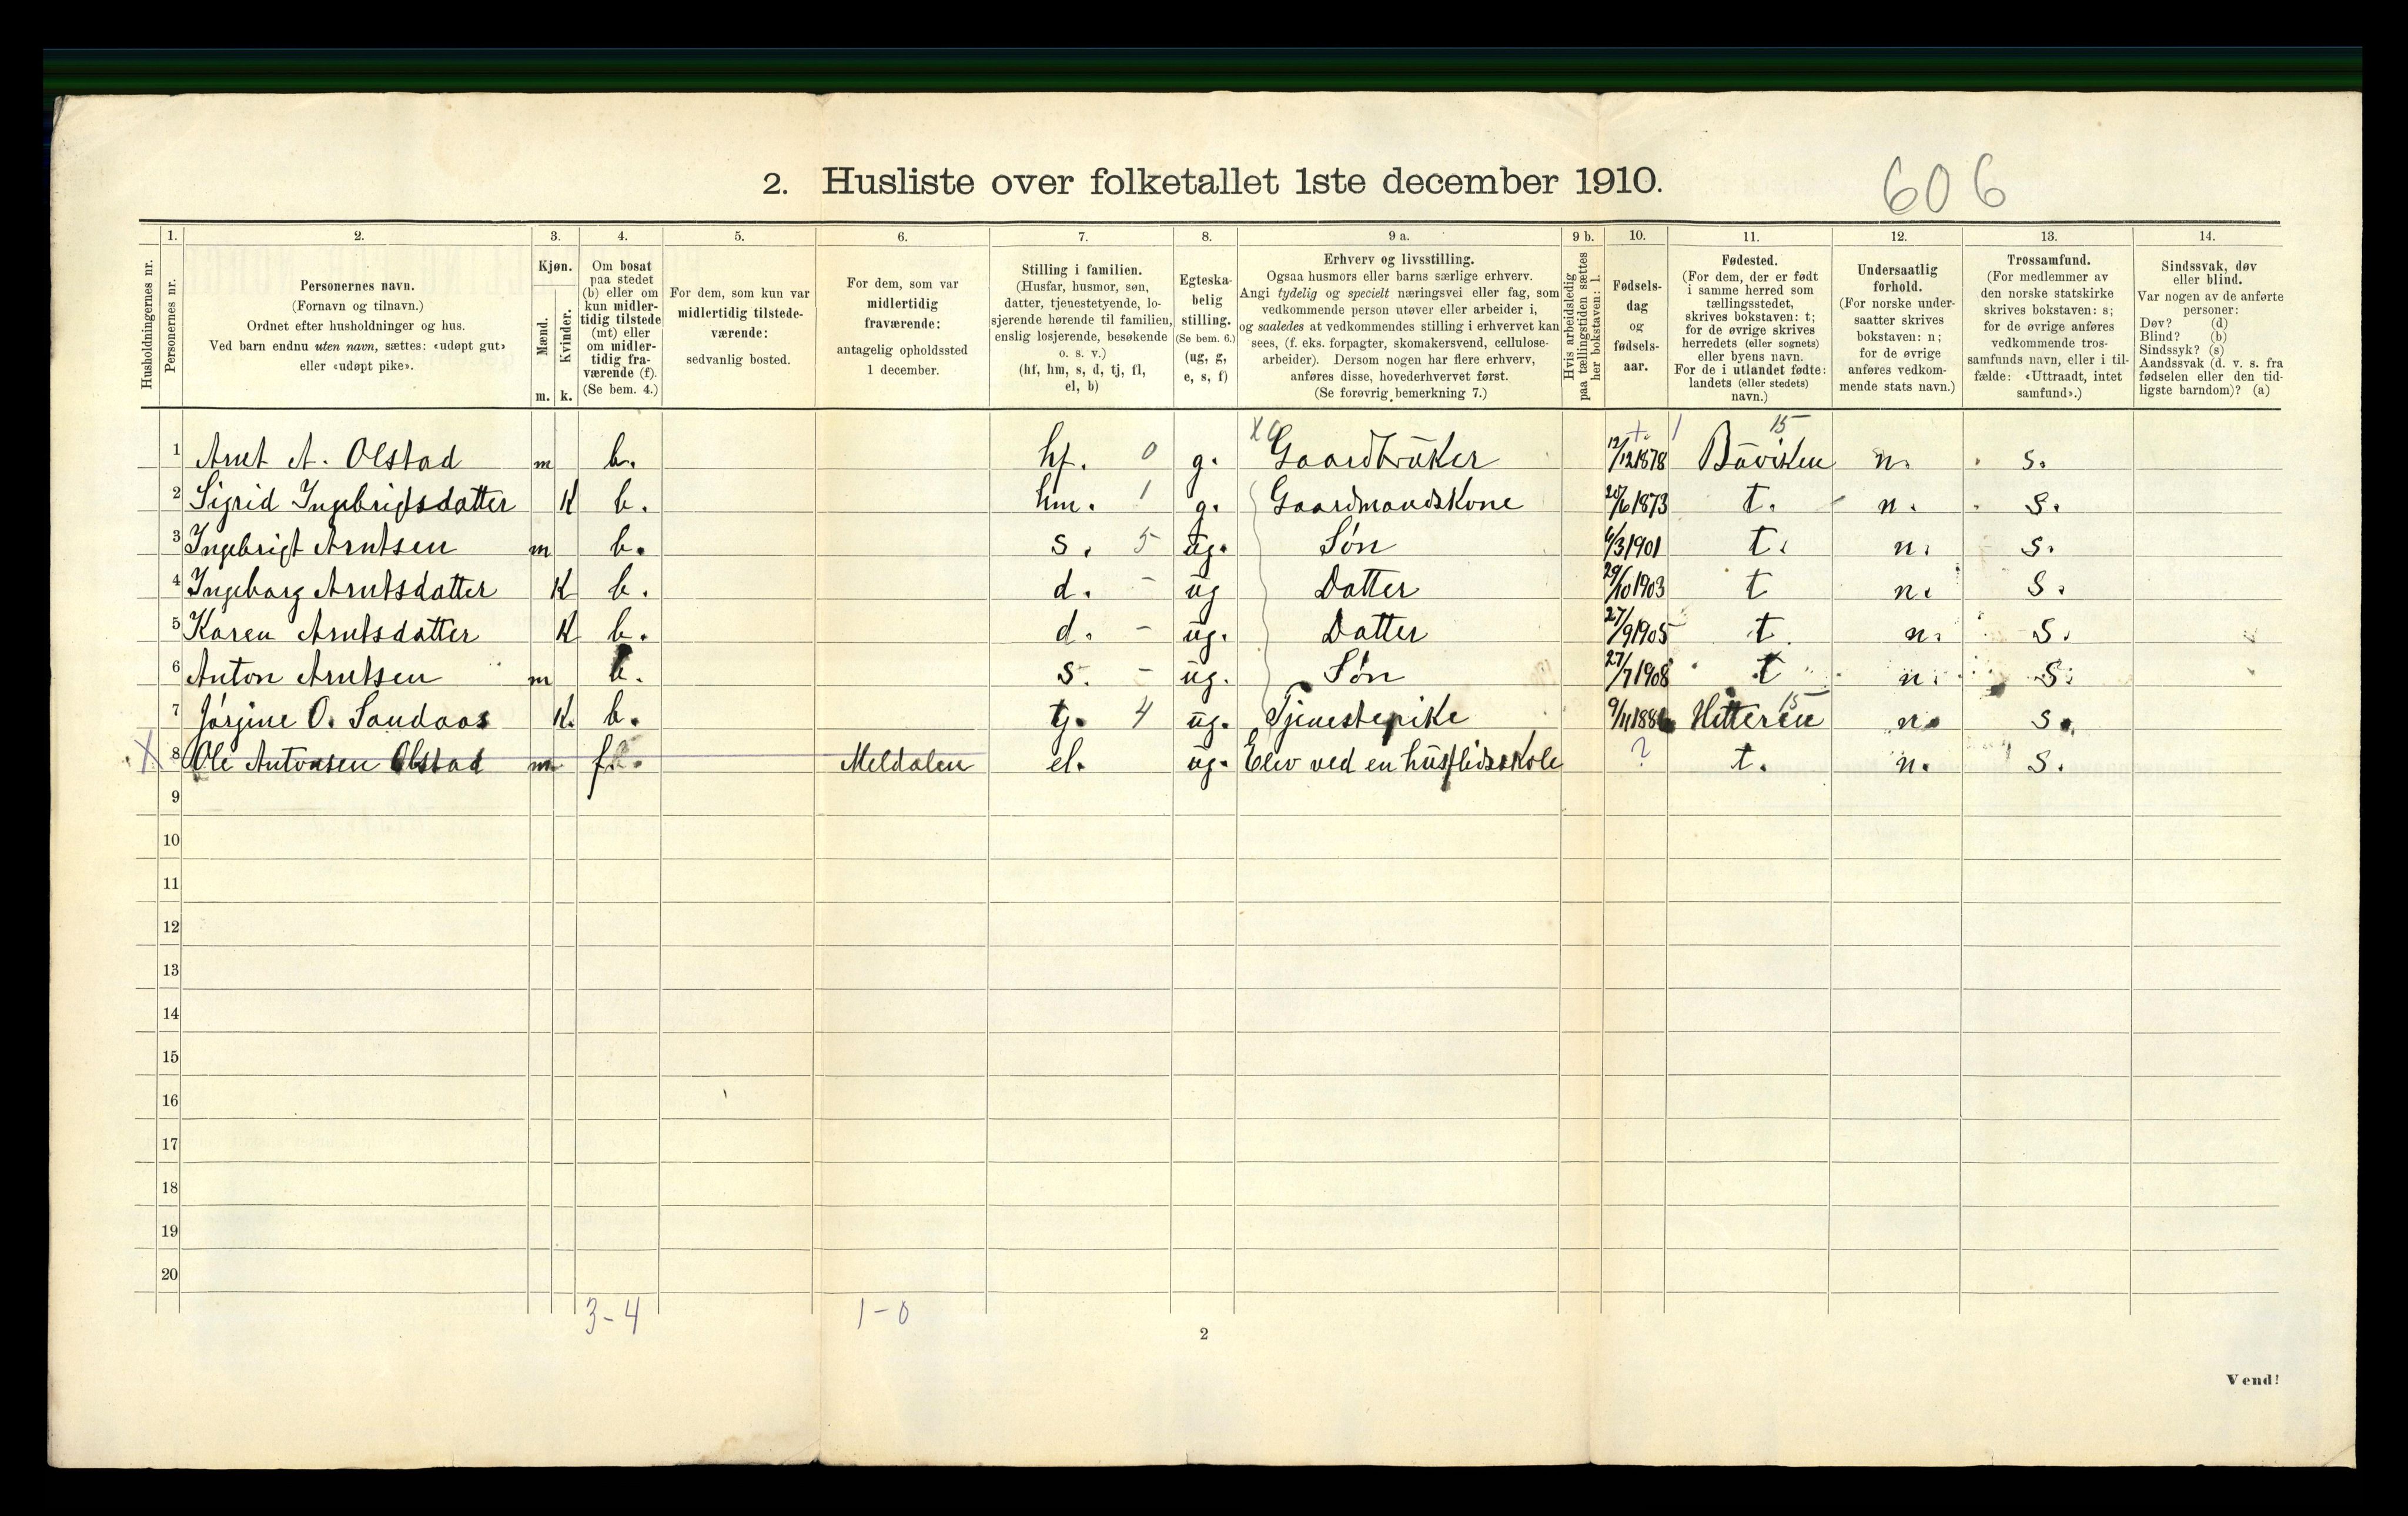 2. Husliste over folketallet 1ste december 1910.
606
Husholdningernes nr.
1.
Personernes nr.
2.
Personernes navn.
(Fornavn og tilnavn.)
Ordnet efter husholdninger og hus.
Ved barn endnu uten navn, sættes: «udøpt gut»
eller «udøpt pike».
3.
Kjøn.
Mænd.
Kvinder.
m. k.
4.
Om bosat
paa stedet
(b) eller om
kun midler-
tidig tilstede
(mt) eller
om midler-
tidig fra-
værende (f).
(Se bem. 4.)
5.
For dem, som kun var
midlertidig tilstede-
værende:
sedvanlig bosted.
6.
For dem, som var
midlertidig
fraværende:
antagelig opholdssted
1 december.
7.
Stilling i familien.
(Husfar, husmor, søn,
datter, tjenestetyende, lo-
sjerende hørende til familien,
enslig losjerende, besøkende
o. s. v.)
(hf, hm, s, d, tj, fl,
el, b)
8.
Egteska-
belig
stilling.
(Se bem. 6.)
(ug, g,
e, s, f)
9 a.
Erhverv og livsstilling.
Ogsaa husmors eller barns særlige erhverv.
Angi tydelig og specielt næringsvei eller fag, som
vedkommende person utøver eller arbeider i,
og saaledes at vedkommendes stilling i erhvervet kan
sees, (f. eks. forpagter, skomakersvend, cellulose-
arbeider). Dersom nogen har flere erhverv,
anføres disse, hovederhvervet først.
(Se forøvrig bemerkning 7.)
9 b.
Hvis arbeidsledig
paa tællingstiden sættes
her bokstaven: l.
10.
Fødsels-
dag
og
fødsels-
aar.
11.
Fødested.
(For dem, der er født
i samme herred som
tællingsstedet,
skrives bokstaven: t;
for de øvrige skrives
herredets (eller sognets)
eller byens navn.
For de i utlandet fødte:
landets (eller stedets)
navn.)
12.
Undersaatlig
forhold.
(For norske under-
saatter skrives
bokstaven: n;
for de øvrige
anføres vedkom-
mende stats navn.)
13.
Trossamfund.
(For medlemmer av
den norske statskirke
skrives bokstaven: s;
for de øvrige anføres
vedkommende tros-
samfunds navn, eller i til-
fælde: «Uttraadt, intet
samfund».)
14.
Sindssvak, døv
eller blind.
Var nogen av de anførte
personer:
Døv? (d)
Blind? (b)
Sindssyk? (s)
Aandssvak (d. v. s. fra
fødselen eller den tid-
ligste barndom)? (a)
1 Arnt A. Olstad m b. hf. 0 g. Gaardbruker 12/12 1878 Buviken 15 n. s.
2 Sigrid Ingebrigtsdatter K b. hm. 1 g. Gaardmandskone 20/6 1873 t. n. s.
3 Ingebrigt Arntsen m b. s. 5 ug. Søn 6/3 1901 t. n. s.
4 Ingeborg Arntsdatter K b. d. - ug Datter 29/10 1903 t n. s.
5 Karen Arntsdatter K b. d. - ug. Datter 27/9 1905 t n. s.
6 Anton Arntsen m b. s. - ug. Søn 27/7 1908 t n. s.
7 Jørgine O. Sandaas K. b. tj. 4 ug. Tjenestepike 9/11 188 Hitteren 15 n. s.
X 8 Ole Antonsen Olstad m f. Meldalen el. ug. Elev ved en husflidsskole ? t. n. s.
9
10
11
12
13
14
15
16
17
18
19
20
3-4 1-0
2
Vend!